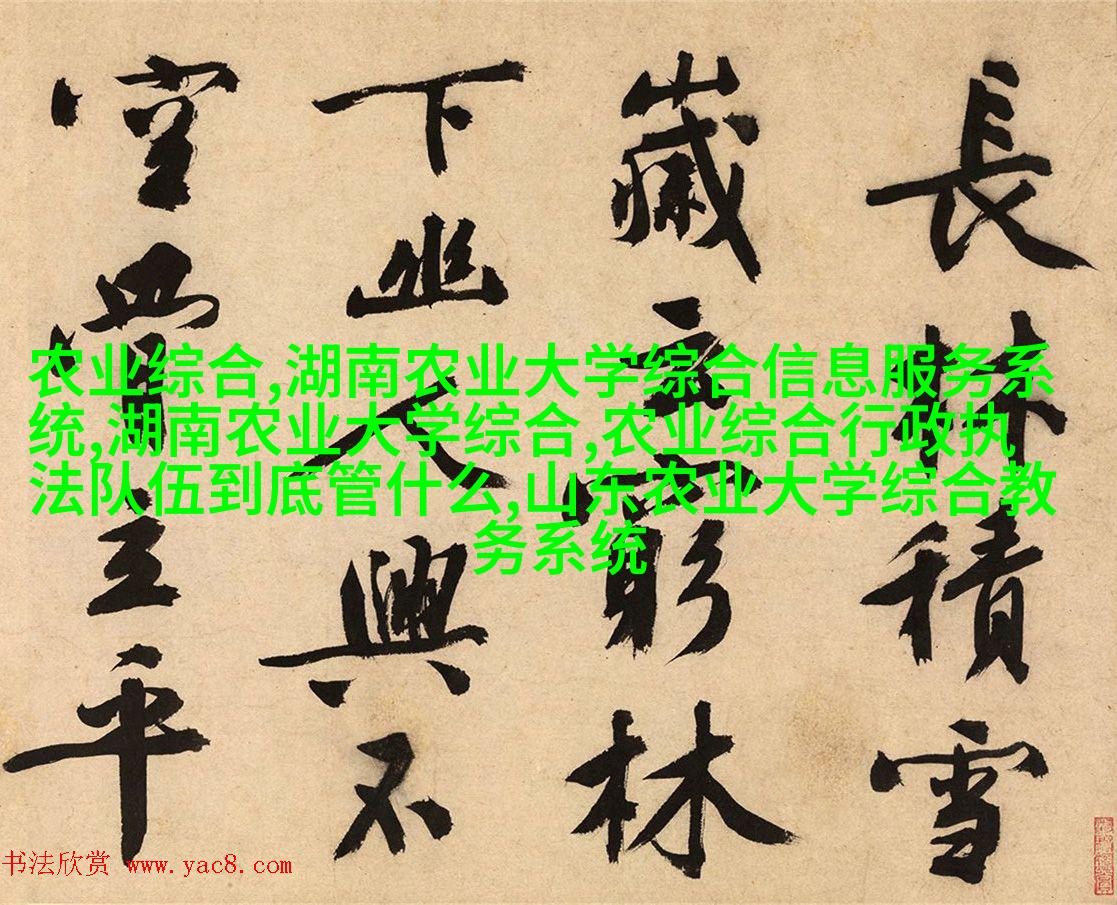 長林積雪
歲云窮林
下幽人興不
空平
农业综合,湖南农业大学综合信息服务系
统,湖南农业大学综合,农业综合行政执
法队伍到底管什么,山东农业大学综合教
务系统
书法欣赏 www.yac8.com